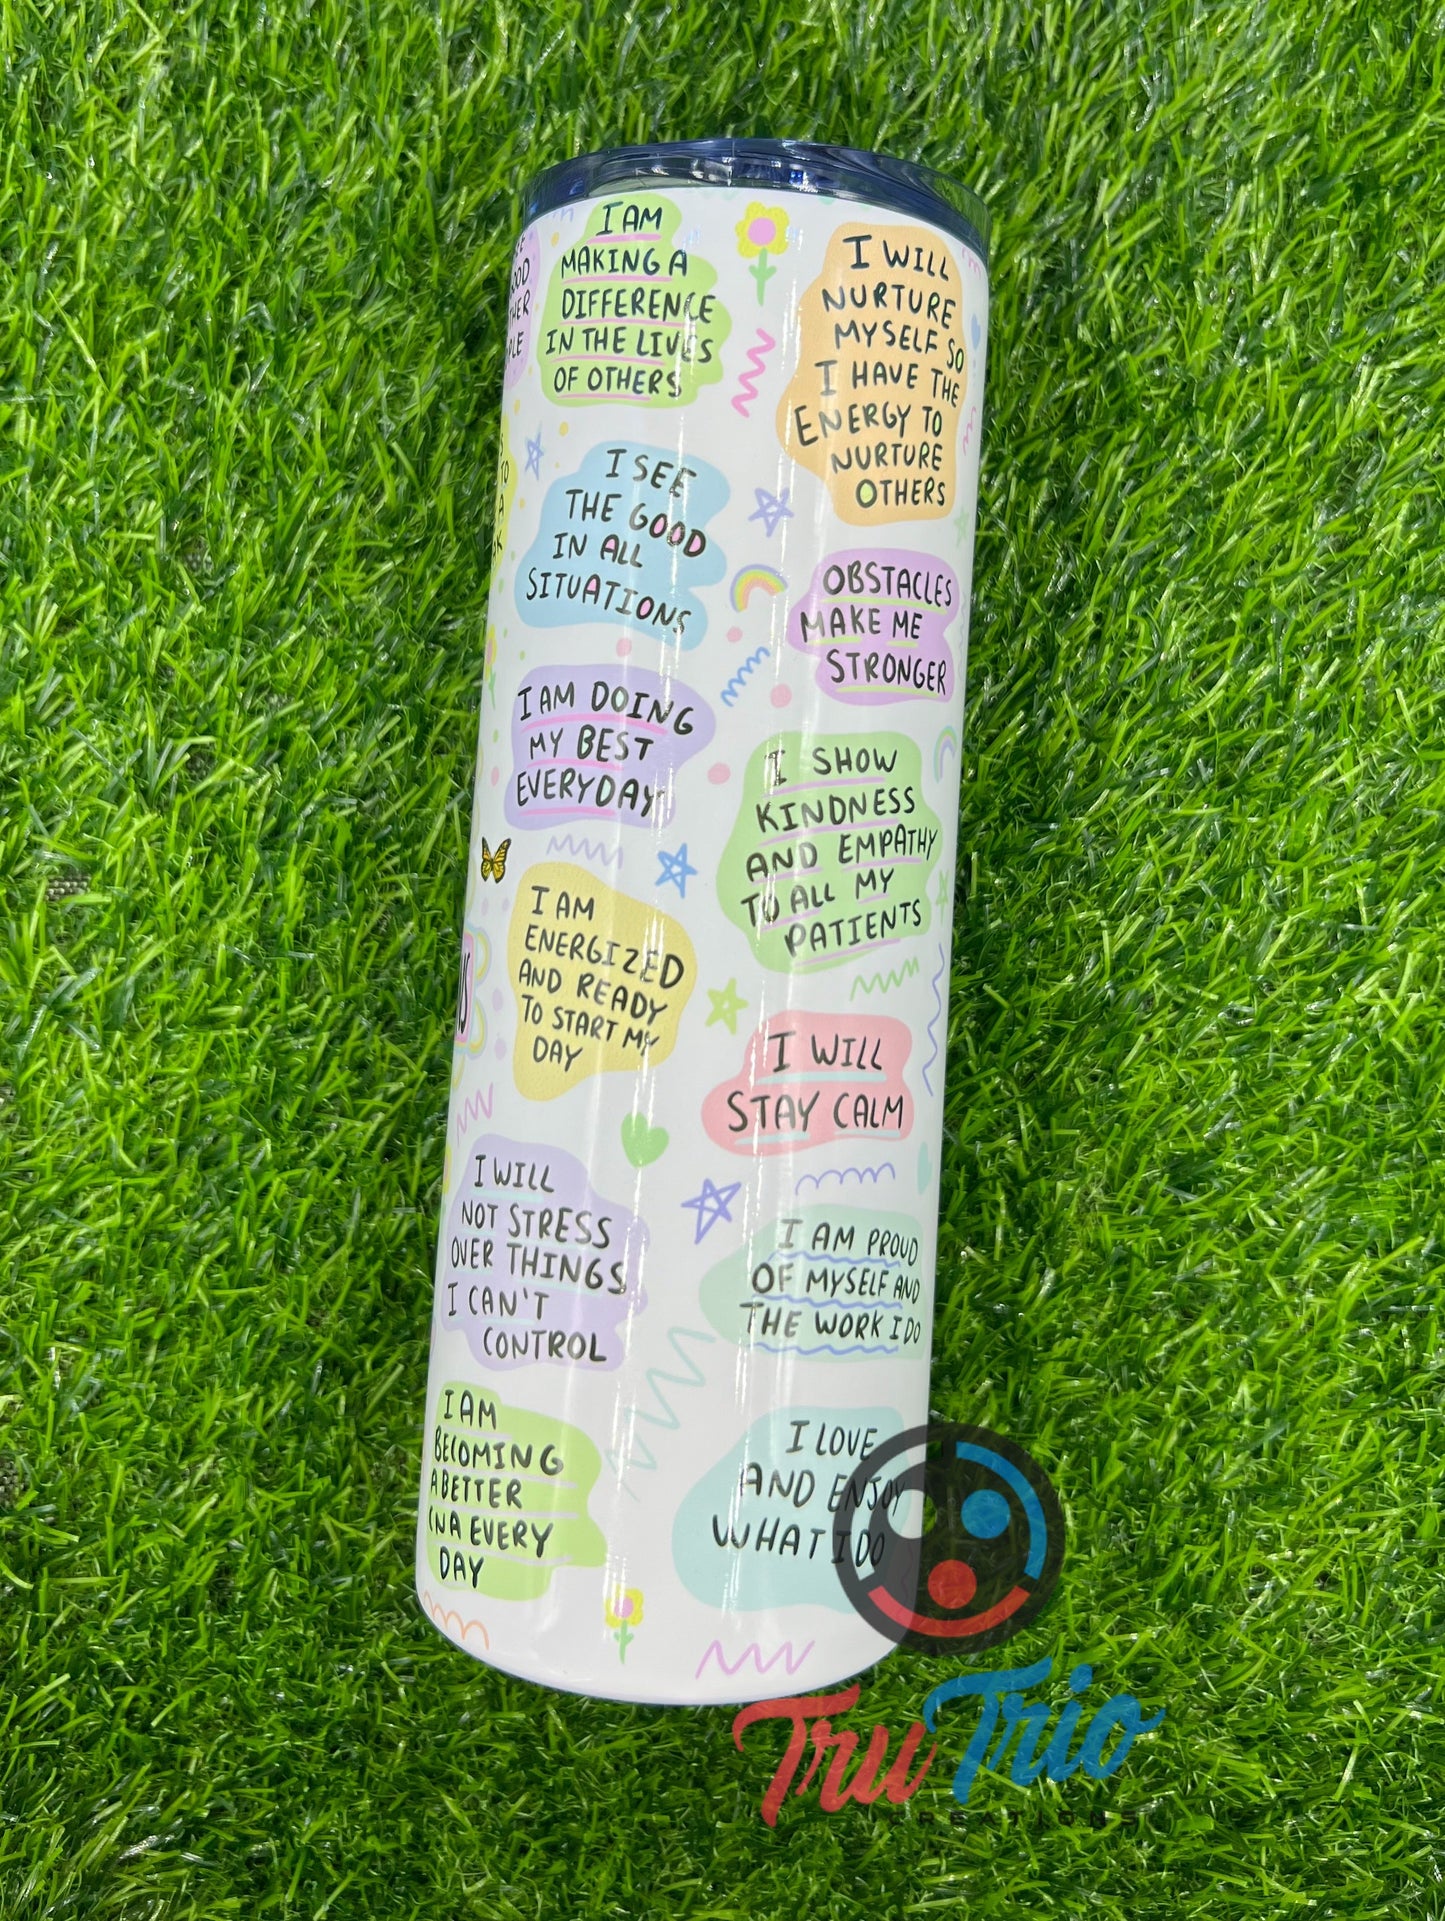 I AM
MAKING A
DIFFERENCE
IN THE LIVES
OF OTHERS
I WILL
NURTURE
MYSELF SO
I HAVE THE
ENERGY TO
NURTURE
OTHERS
I SEE
THE GOOD
IN ALL
SITUATIONS
OBSTACLES
MAKE ME
STRONGER
I AM DOING
MY BEST
EVERYDAY
I SHOW
KINDNESS
AND EMPATHY
TO ALL MY
PATIENTS
I AM
ENERGIZED
AND READY
TO START MY
DAY
I WILL
STAY CALM
I WILL
NOT STRESS
OVER THINGS
I CAN'T
CONTROL
I AM PROUD
OF MYSELF AND
THE WORK I DO
I AM
BECOMING
A BETTER
CNA EVERY
DAY
I LOVE
AND ENJOY
WHAT I DO
TruTrio
CREATIONS